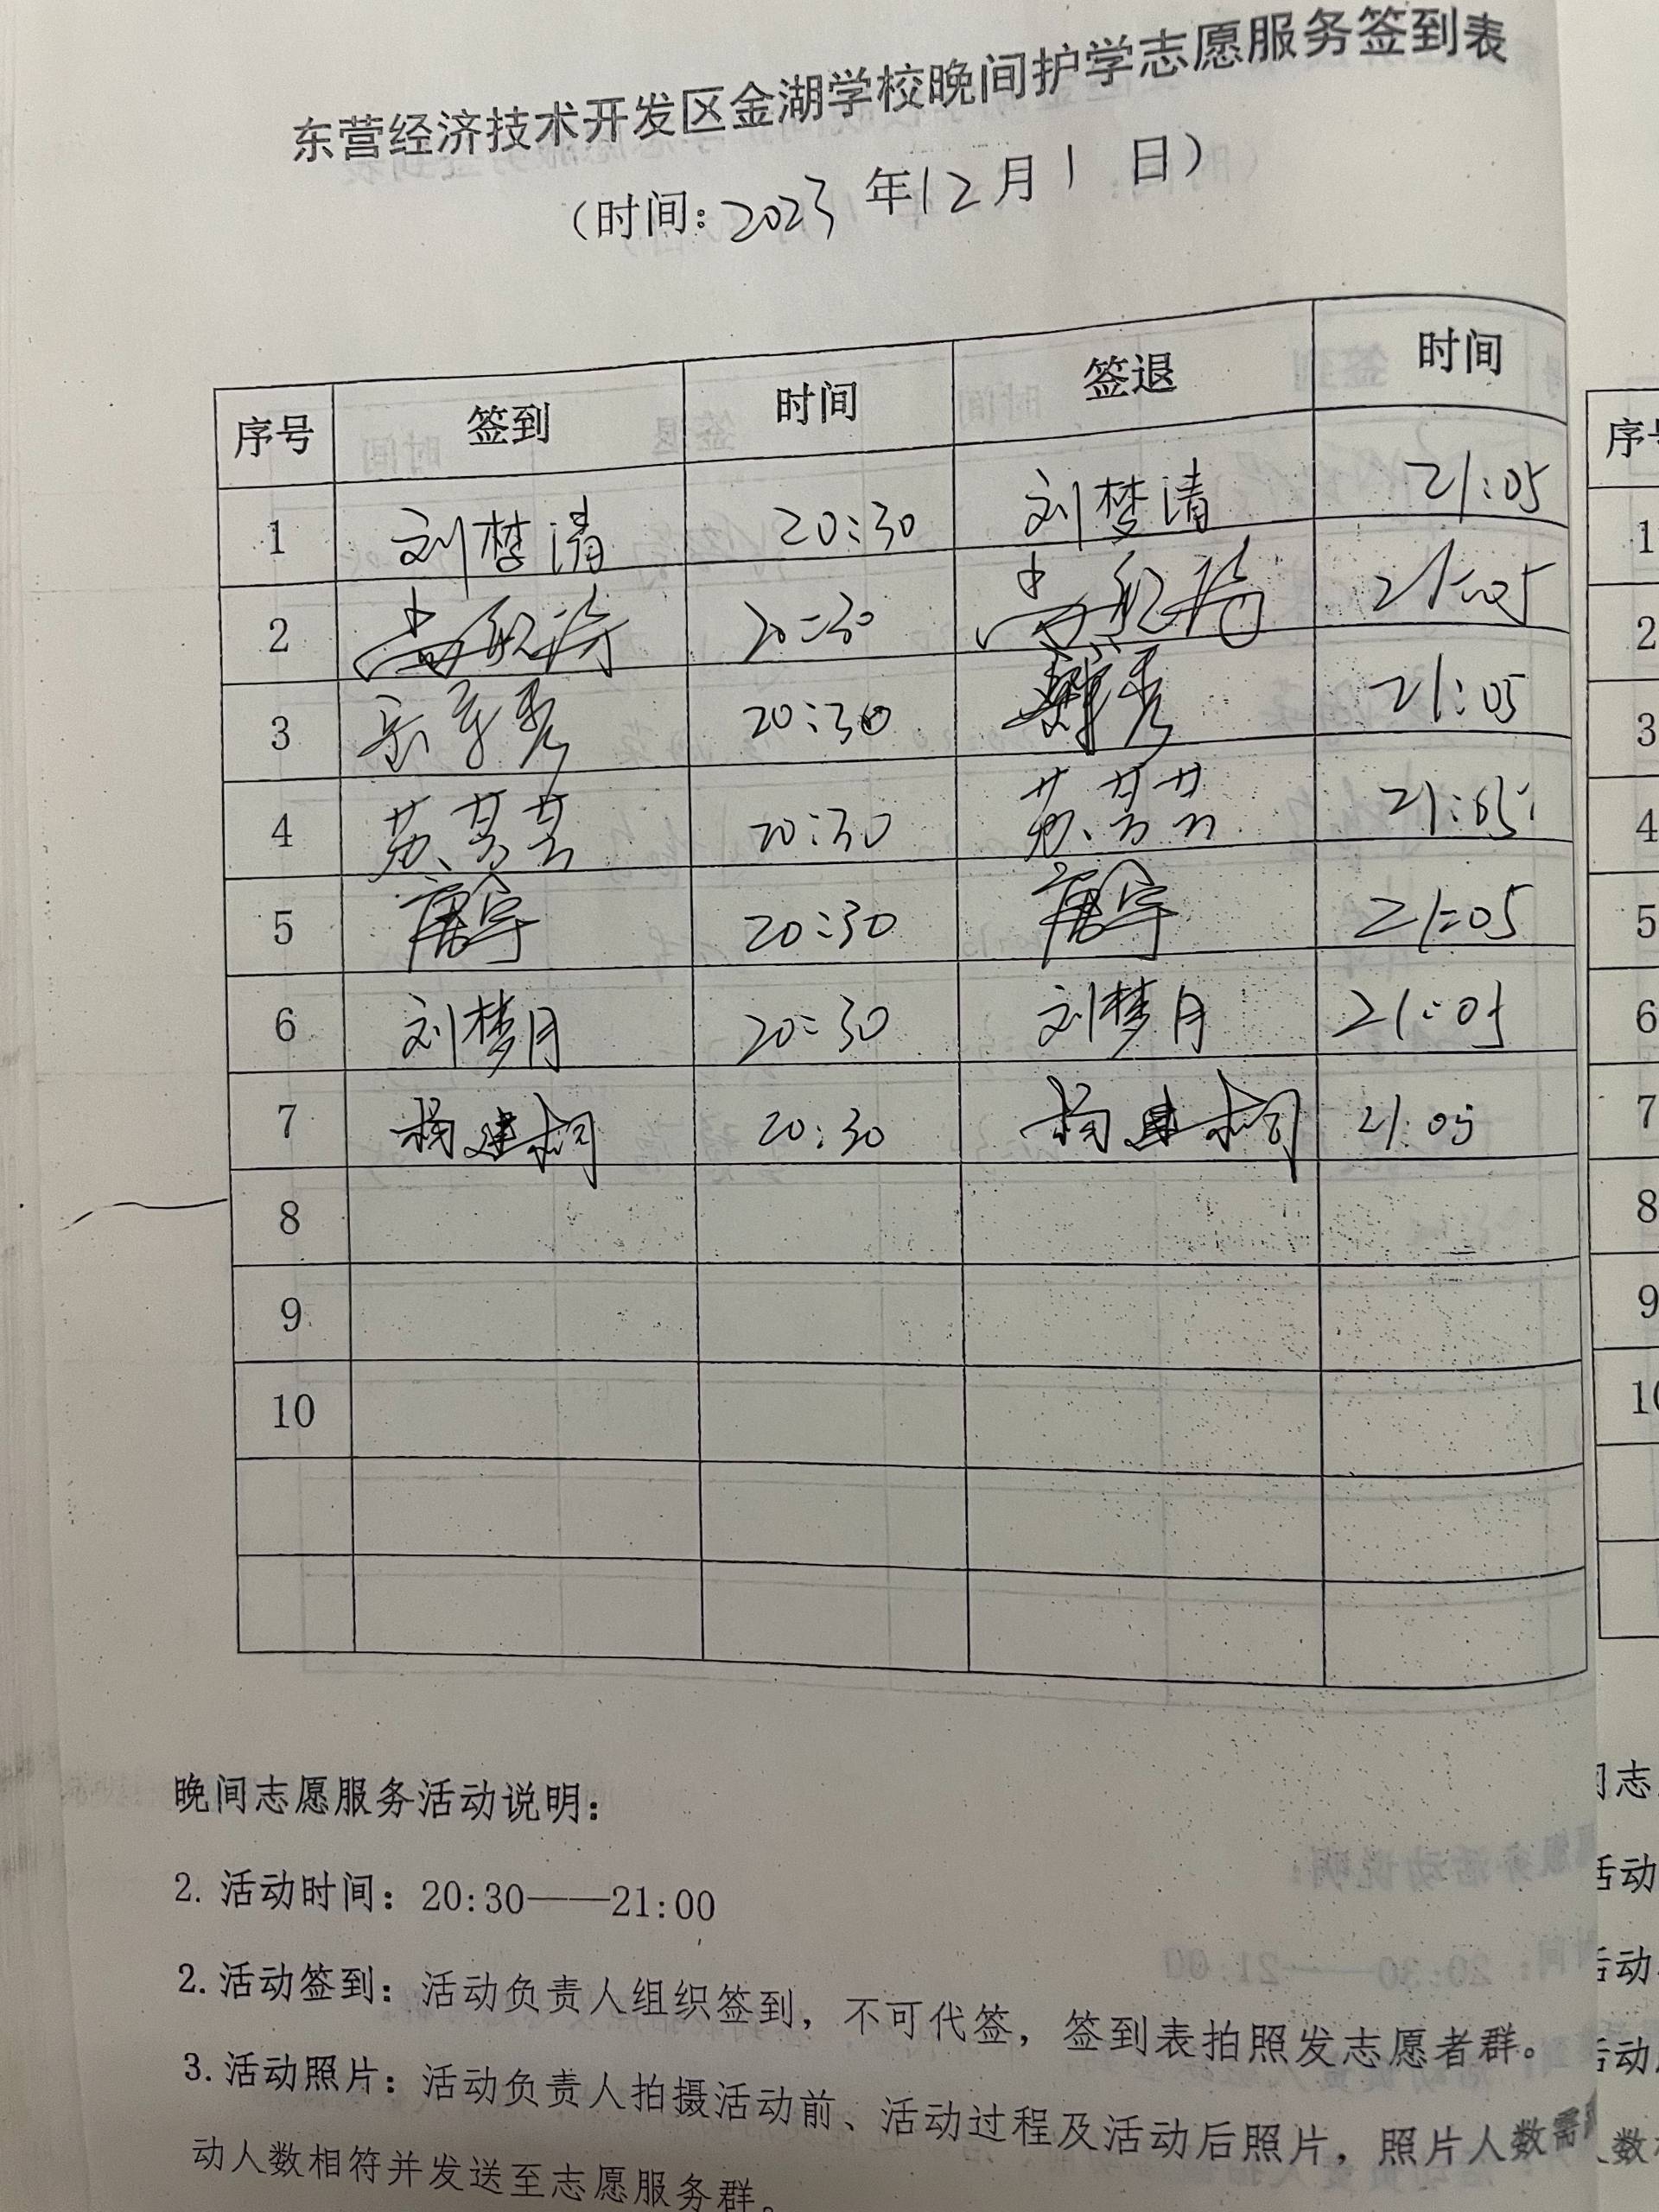 东营经济技术开发区金湖学校晚间护学志愿服务签到表
(时间：2023年12月1日)
序号 签到 时间 签退 时间
1 刘梦清 20:30 刘梦清 21:05
2 20:30 21:05
3 20:30 21:05
4 苏芸芸 20:30 苏芸芸 21:05
5 20:30 21:05
6 刘梦月 20:30 刘梦月 21:05
7 杨建桐 20:30 杨建桐 21:05
8
9
10
晚间志愿服务活动说明：
2. 活动时间：20:30——21:00
2. 活动签到：活动负责人组织签到，不可代签，签到表拍照发志愿者群。
3. 活动照片：活动负责人拍摄活动前、活动过程及活动后照片，照片人数需
动人数相符并发送至志愿服务群。
序号
1
2
3
4
5
6
7
8
9
10
志
活动
活动
活动
人数